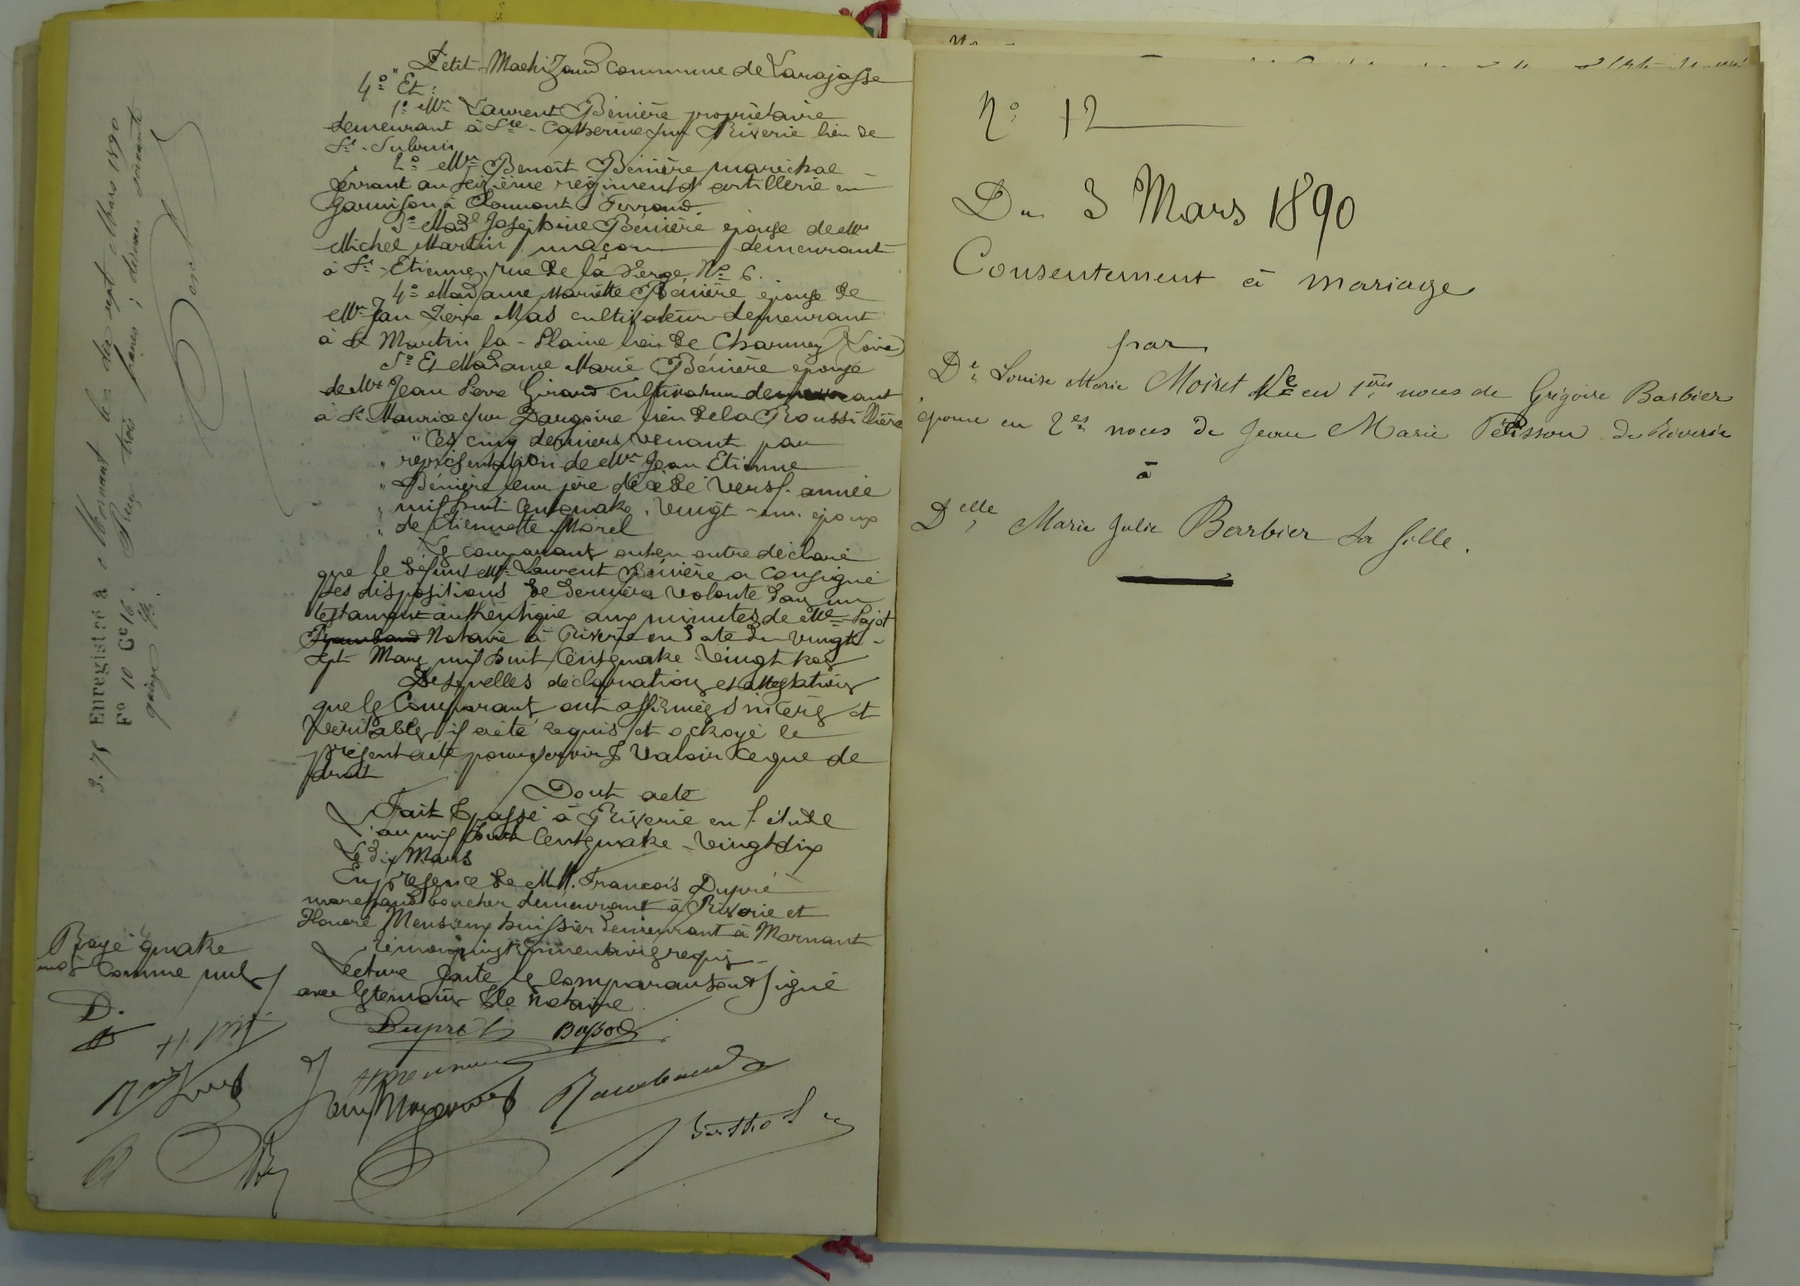 Petit-Machizaud commune de Larajasse
4° Et :
1° Mr Laurent Bénière propriétaire
demeurant à Ste-Catherine sur Riverie lieu de
St-Subrin
2° Mr Benoît Bénière maréchal
ferrant au seizième régiment d'artillerie en
garnison à Clermont-Ferrand
3° Made Joséphine Bénière épouse de Mr
Michel Martin maçon demeurant
à St-Etienne, rue de la Serge, N° 6.
4° Madame Mariette Bénière épouse de
Mr Jean Pierre Mas cultivateur demeurant
à St Martin la-Plaine lieu de Charmey (Loire)
5° Et Madame Marie Bénière épouse
de Mr Jean Pierre Girard cultivateur demeurant
à St Maurice sur Dargoire lieu de la Roussillière
" Ces cinq derniers venant par
" représentation de Mr Jean Etienne
" Bénière leur père décédé vers l'année
" mil huit cent quatre-vingt-un époux
" de Etiennette Morel
Les comparants ont en outre déclaré
que le défunt Mr Laurent Bénière a consigné
ses dispositions de dernière volonté dans un
testament authentique aux minutes de Me Pajot
Notaire à Riverie en date du vingt-
sept Mars mil huit cent quatre-vingt
Desquelles déclarations et attestations
que les Comparants ont affirmées sincères et
véritables il a été requis et octroyé le
présent acte pour servir & valoir ce que de
droit
Dont acte
Fait & passé à Riverie en l'étude
L'an mil huit cent quatre-vingt dix
Le dix Mars
En présence de M.M. François Dupré
marchand boucher demeurant à Riverie et
Honoré Mensieux huissier demeurant à Mornant
témoins instrumentaires requis
Lecture faite les comparants ont signé
avec les témoins & le notaire
Dupré
Rambaud
Rayé quatre
mots comme nuls
D.
3.75 Enregistré à Mornant le dix sept Mars 1890
F° 10 C° 16. Reçu trois francs ; décimes soixante
quinze
N° 12
Du 3 Mars 1890
Consentement à mariage
par
De Louise Marie Moiset Ve en 1ères noces de Grégoire Barbier
épouse en 2es noces de Jean Marie Pétisson de Riverie
à
Delle Marie Julie Barbier sa fille.